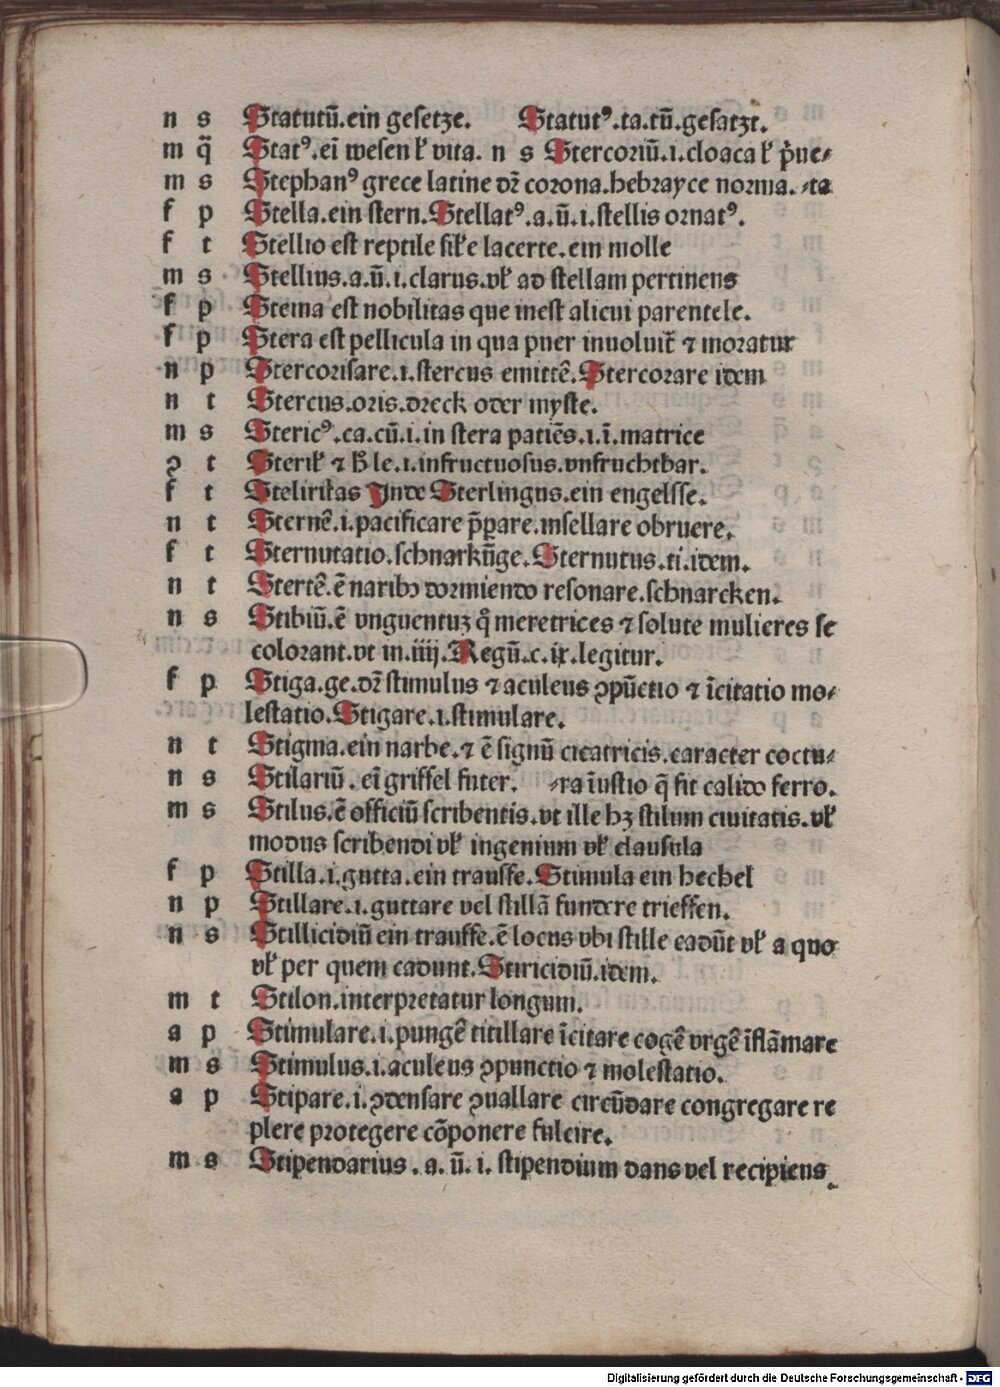 n s Statutū.ein gesetze. Statutꝰ.ta.tū.gesatzt.
m q̄ Statꝰ.eī wesen ł vita. n s Stercoriū.i.cloaca ł p̄ue⸗
m s Stephanꝰ grece latine dr̄ corona.hebrayce norma.⸗ta
f p Stella.ein stern.Stellatꝰ.a.ū.i.stellis ornatꝰ.
f t Stellio est reptile sił'e lacerte.ein molle
m s Stellius.a.ū.i.clarus.vł ad stellam pertinens
f p Stema est nobilitas que inest alicui parentele.
f p Stera est pellicula in qua puer inuoluit̄ ⁊ moratur
n p Stercorisare.i.stercus emittē.Stercorare idem
n t Stercus.oris.dreck oder myste.
m s Stericꝰ.ca.cū.i.in stera patiēs.i.ī.matrice
ꝯ t Sterił ⁊ h̄ le.i.infructuosus.vnfruchtbar.
f t Steliritas Inde Sterlingus.ein engelsse.
n t Sternē.i.pacificare p̄ꝑare.insellare obruere.
f t Sternutatio.schnarkūge.Sternutus.ti.idem.
n t Stertē.ē naribꝫ dormiendo resonare.schnarcken.
n s Stibiū.ē vnguentuꝫ q̊ meretrices ⁊ solute mulieres se
colorant.vt in.iiij.Regū.c.ix.legitur.
f p Stiga.ge.dr̄ stimulus ⁊ aculeus ꝯpūctio ⁊ īcitatio mo⸗
lestatio.Stigare.i.stimulare.
n t Stigma.ein narbe.⁊ ē signū cicatricis.caracter coctu⸗
n s Stilariū.eī griffel futer. ⸗ra īustio q̄ fit calido ferro.
m s Stilus.ē officiū scribentis.vt ille hꝫ stilum ciuitatis.vł
modus scribendi vł ingenium vł clausula
f p Stilla.i.gutta.ein trauffe.Stimula ein hechel
n p Stillare.i.guttare vel stillā fundere trieffen.
n s Stillicidiū ein trauffe.ē locus vbi stille cadūt vł a quo
vł per quem cadunt.Stiricidiū.idem.
m t Stilon.interpretatur longum.
a p Stimulare.i.pungē titillare īcitare cogē vrgē īflāmare
m s Stimulus.i.aculeus ꝯpunctio ⁊ molestatio.
a p Stipare.i.ꝯdensare ꝯuallare circūdare congregare re
plere protegere cōponere fulcire.
m s Stipendarius.a.ū.i.stipendium dans vel recipiens
Digitalisierung gefördert durch die Deutsche Forschungsgemeinschaft - DFG